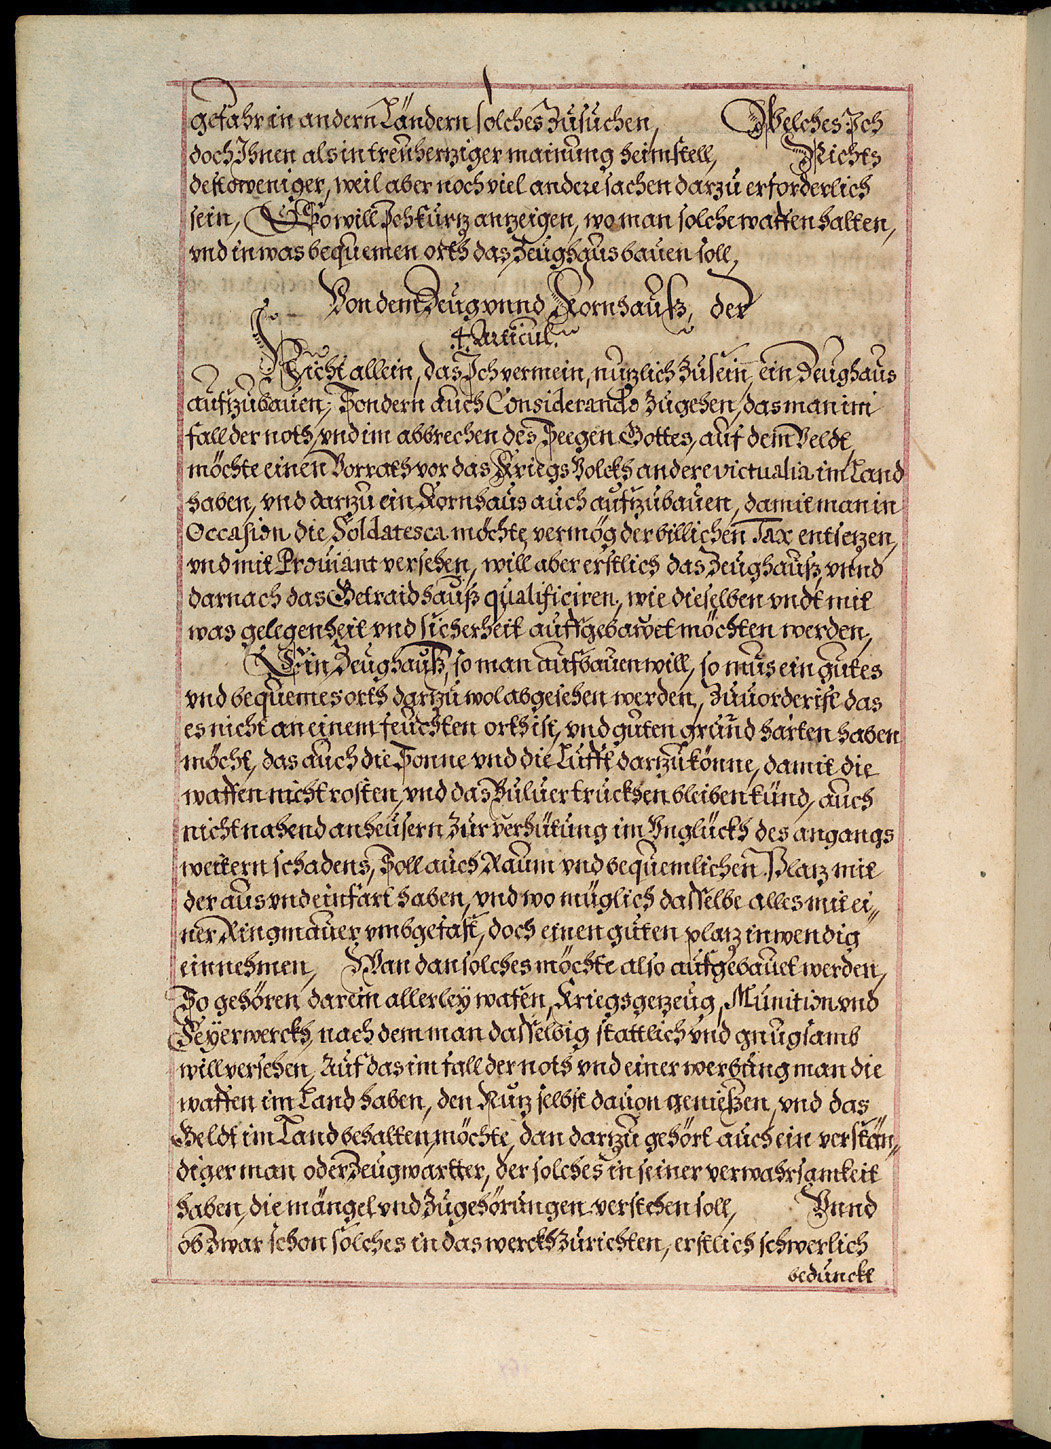 gefahr in andern Ländern solches Zusuchen, Welches Ich
doch Ihnen als in treuhertziger mainung heimstell, Nichts
destoweniger, weil aber noch viel andere sachen darzu erforderlich
sein, So will Ich kürtz anzeigen, wo man solche waffen halten,
vnd in was bequemen orth das Zeughaus bauen soll,
Von dem Zeug vnnd Kornhauß, der
4. Articul.
Nicht allein, das Ich vermein, nutzlich Zusein, ein Zeughaus
aufzubauen, Sondern auch Considerando Zugehen, das man im
fall der noth, vnd im abbrechen des Seegen Gottes, auf dem Veldt,
möchte einen Vorrath vor das Kriegs Volckh andere victualia im Land
haben, vnd dartzu ein Kornhaus auch aufzubauen, damit man in
Occasion die Soldatesca möchte, vermög der billichen Tax entsetzen,
vnd mit Prouiant versehen, will aber erstlich das Zeughauß, vnnd
darnach das Getraidhauß qualificiren, wie dieselben vndt mit
was gelegenheit vnd sicherheit auffgebawet möchten werden,
Ein Zeughauß, so man aufbauen will, so mus ein gutes
vnd bequemes orth dartzu wol abgesehen werden, Zuuorderist das
es nicht an einem feuchten orth ist, vnd guten grund harten haben
möcht, das auch die Sonne vnd die Lufft dartzu könne, damit die
waffen nicht rosten, vnd das Puluer truckhen bleiben künd, auch
nicht nahend an heusern Zur verhütung im Vnglückh des angangs
weitern schadens, Soll auch Raum vnd bequemlichen Platz mit
der aus vnd einfart haben, vnd wo müglich dasselbe alles mit ei„
ner Ringmauer vmbgefast, doch einen guten platz inwendig
einnehmen, Wan dan solches möchte also aufgebauet werden,
So gehören darein allerley wafen, Kriegsgezeug, Munition vnd
Feyerwerckh, nach dem man dasselbig stattlich vnd gnugsamb
will versehen, Auf das im fall der noth vnd einer werbung man die
waffen im Land haben, den Nutz selbst dauon genießen, vnd das
Geldt im Land behalten möchte, dan dartzu gehört auch ein verstän„
diger man oder Zeugwartter, der solches in seiner verwahrsamkeit
haben, die mängel vnd Zugehörungen verstehen soll, Vnnd
ob Zwar schon solches in das werckh Zurichten, erstlich schwerlich
bedunckt